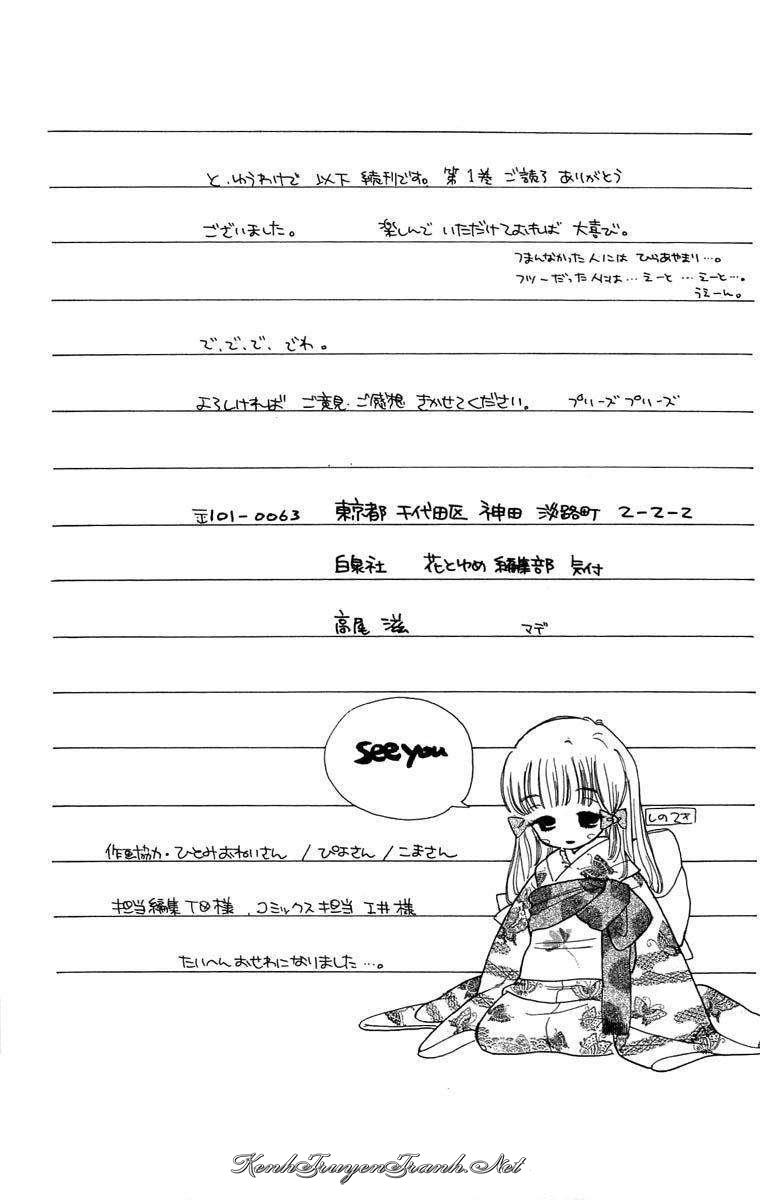 と、ゆうわけで 以下 続刊です。 第1巻 ご読了 ありがとう
ございました。 楽しんで いただけておれば 大喜び。
つまんなかった人には ひらあやまり…。
フツーだった人には… えーと …えーと…。
うえーん。
で、で、で、でわ。
よろしければ ご意見・ご感想 きかせてください。 プリーズプリーズ
〒101-0063 東京都 千代田区 神田 淡路町 2-2-2
白泉社 花とゆめ 編集部 気付
高尾 滋 マデ
see you
しのてさ
作画協力・ひとみおねいさん / ぴよさん / こまさん
担当編集 T 様、コミックス担当 工井 様
たいへんおせわになりました…。
KenhTruyenTranh.Net